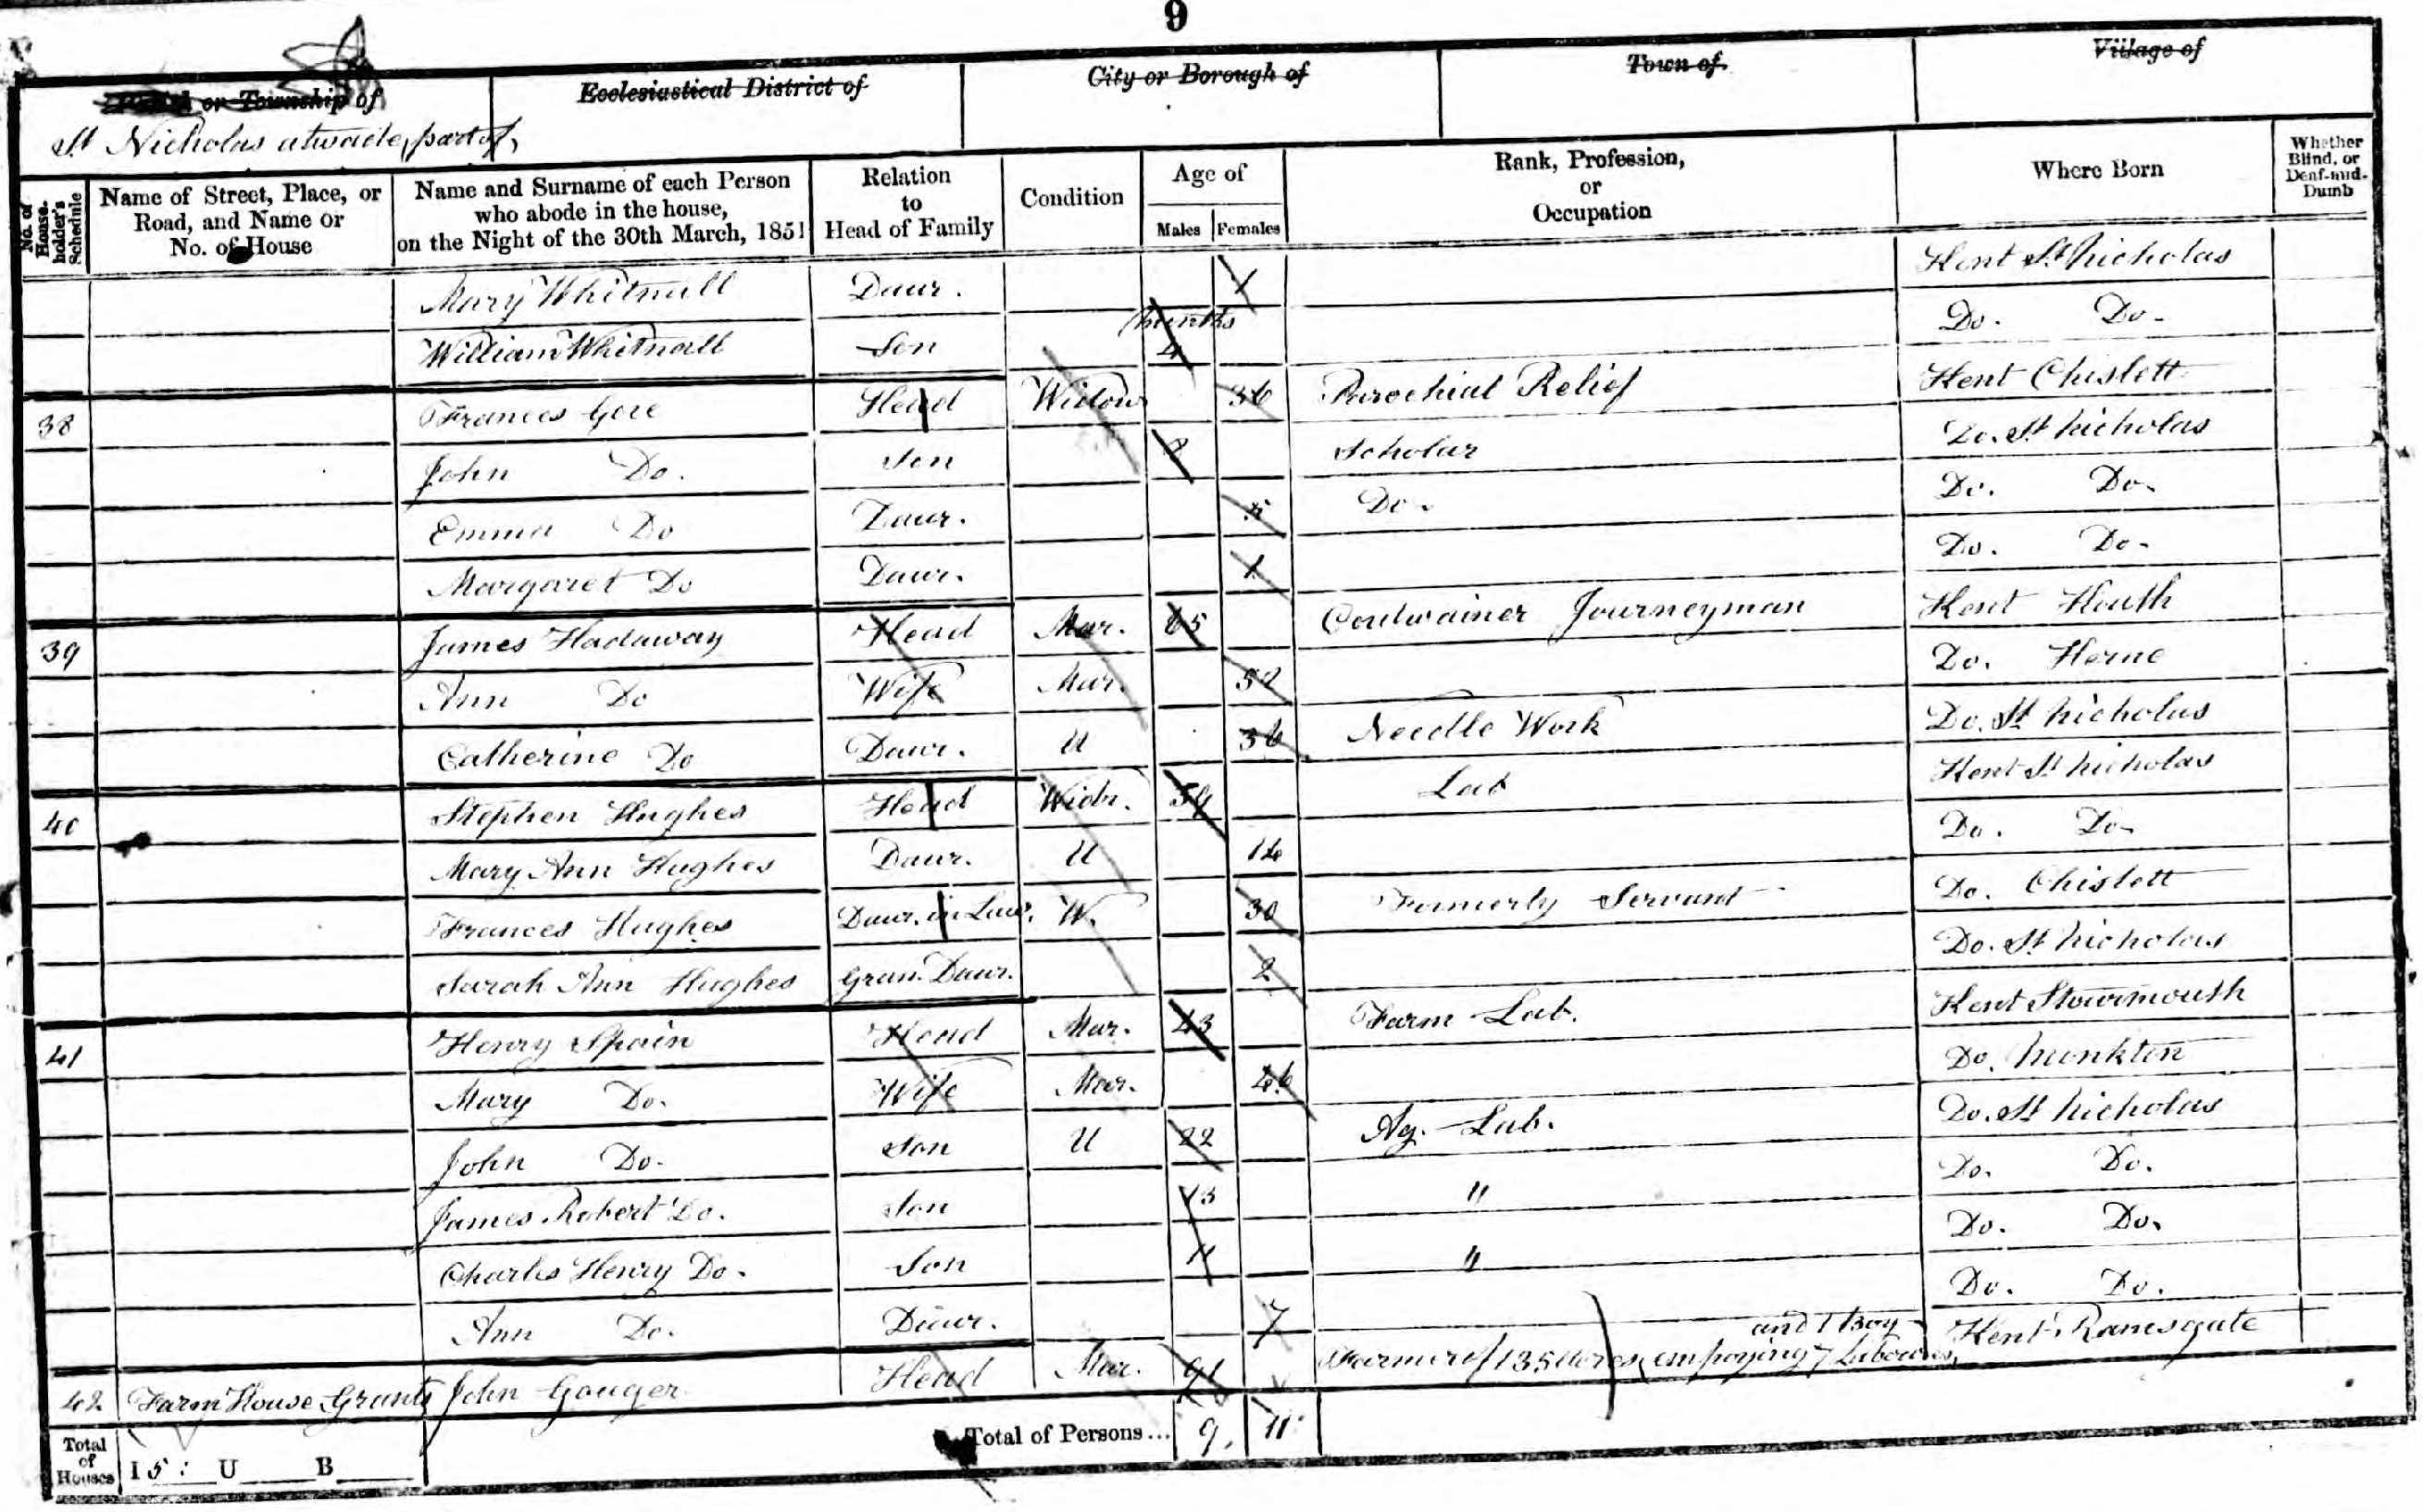 9
Parish or Township of Ecclesiastical District of City or Borough of Town of Village of
St Nicholas atwade, part of,
No. of House-holder's Schedule Name of Street, Place, or Road, and Name or No. of House Name and Surname of each Person who abode in the house, on the Night of the 30th March, 1851 Relation to Head of Family Condition Age of Males Females Rank, Profession, or Occupation Where Born Whether Blind, or Deaf-and-Dumb
Mary Whitnall Daur. 1 Kent St Nicholas
William Whitnall Son months 4 Do. Do.
38 Frances Gore Head Widow 36 Parochial Relief Kent Chislett
John Do. Son Scholar Do. St Nicholas
Emma Do Daur. 5 Do. Do. Do.
Margaret Do Daur. 1 Do. Do.
39 James Hadaway Head Mar. 65 Cordwainer Journeyman Kent Hoath
Ann Do Wife Mar. 52 Do. Herne
Catherine Do Daur. U 36 Needle Work Do. St Nicholas
40 Stephen Hughes Head Widr. 54 Lab Kent St Nicholas
Mary Ann Hughes Daur. U 14 Do. Do.
Frances Hughes Daur. in Law. W. 30 Formerly Servant Do. Chislett
Sarah Ann Hughes Gran. Daur. 2 Do. St Nicholas
41 Henry Spain Head Mar. 43 Farm Lab. Kent Stourmouth
Mary Do. Wife Mar. 46 Do. Monkton
John Do. Son U 22 Ag. Lab. Do. St Nicholas
James Robert Do. Son 13 " Do. Do.
Charles Henry Do. Son 11 " Do. Do.
Ann Do. Daur. 7 Do. Do.
42 Farm House Grants John Gouger Head Mar. Farmer of 135 Acres, employing 7 Labourers, and 1 Boy Kent Ramsgate
Total of Houses I 5: U B Total of Persons... 9. 11